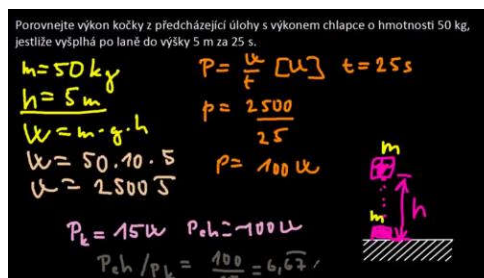 Porovnejte výkon kočky z předcházející úlohy s výkonem chlapce o hmotnosti 50 kg,
jestliže vyšplhá po laně do výšky 5 m za 25 s.
m=50kg
h=5m
W=m·g·h
W=50·10·5
W=2500J
P=W/t [W] t=25s
P=2500/25
P=100W
m
m
h
Pk=15W Pch=100W
Pch/Pk = 100/15 = 6,67